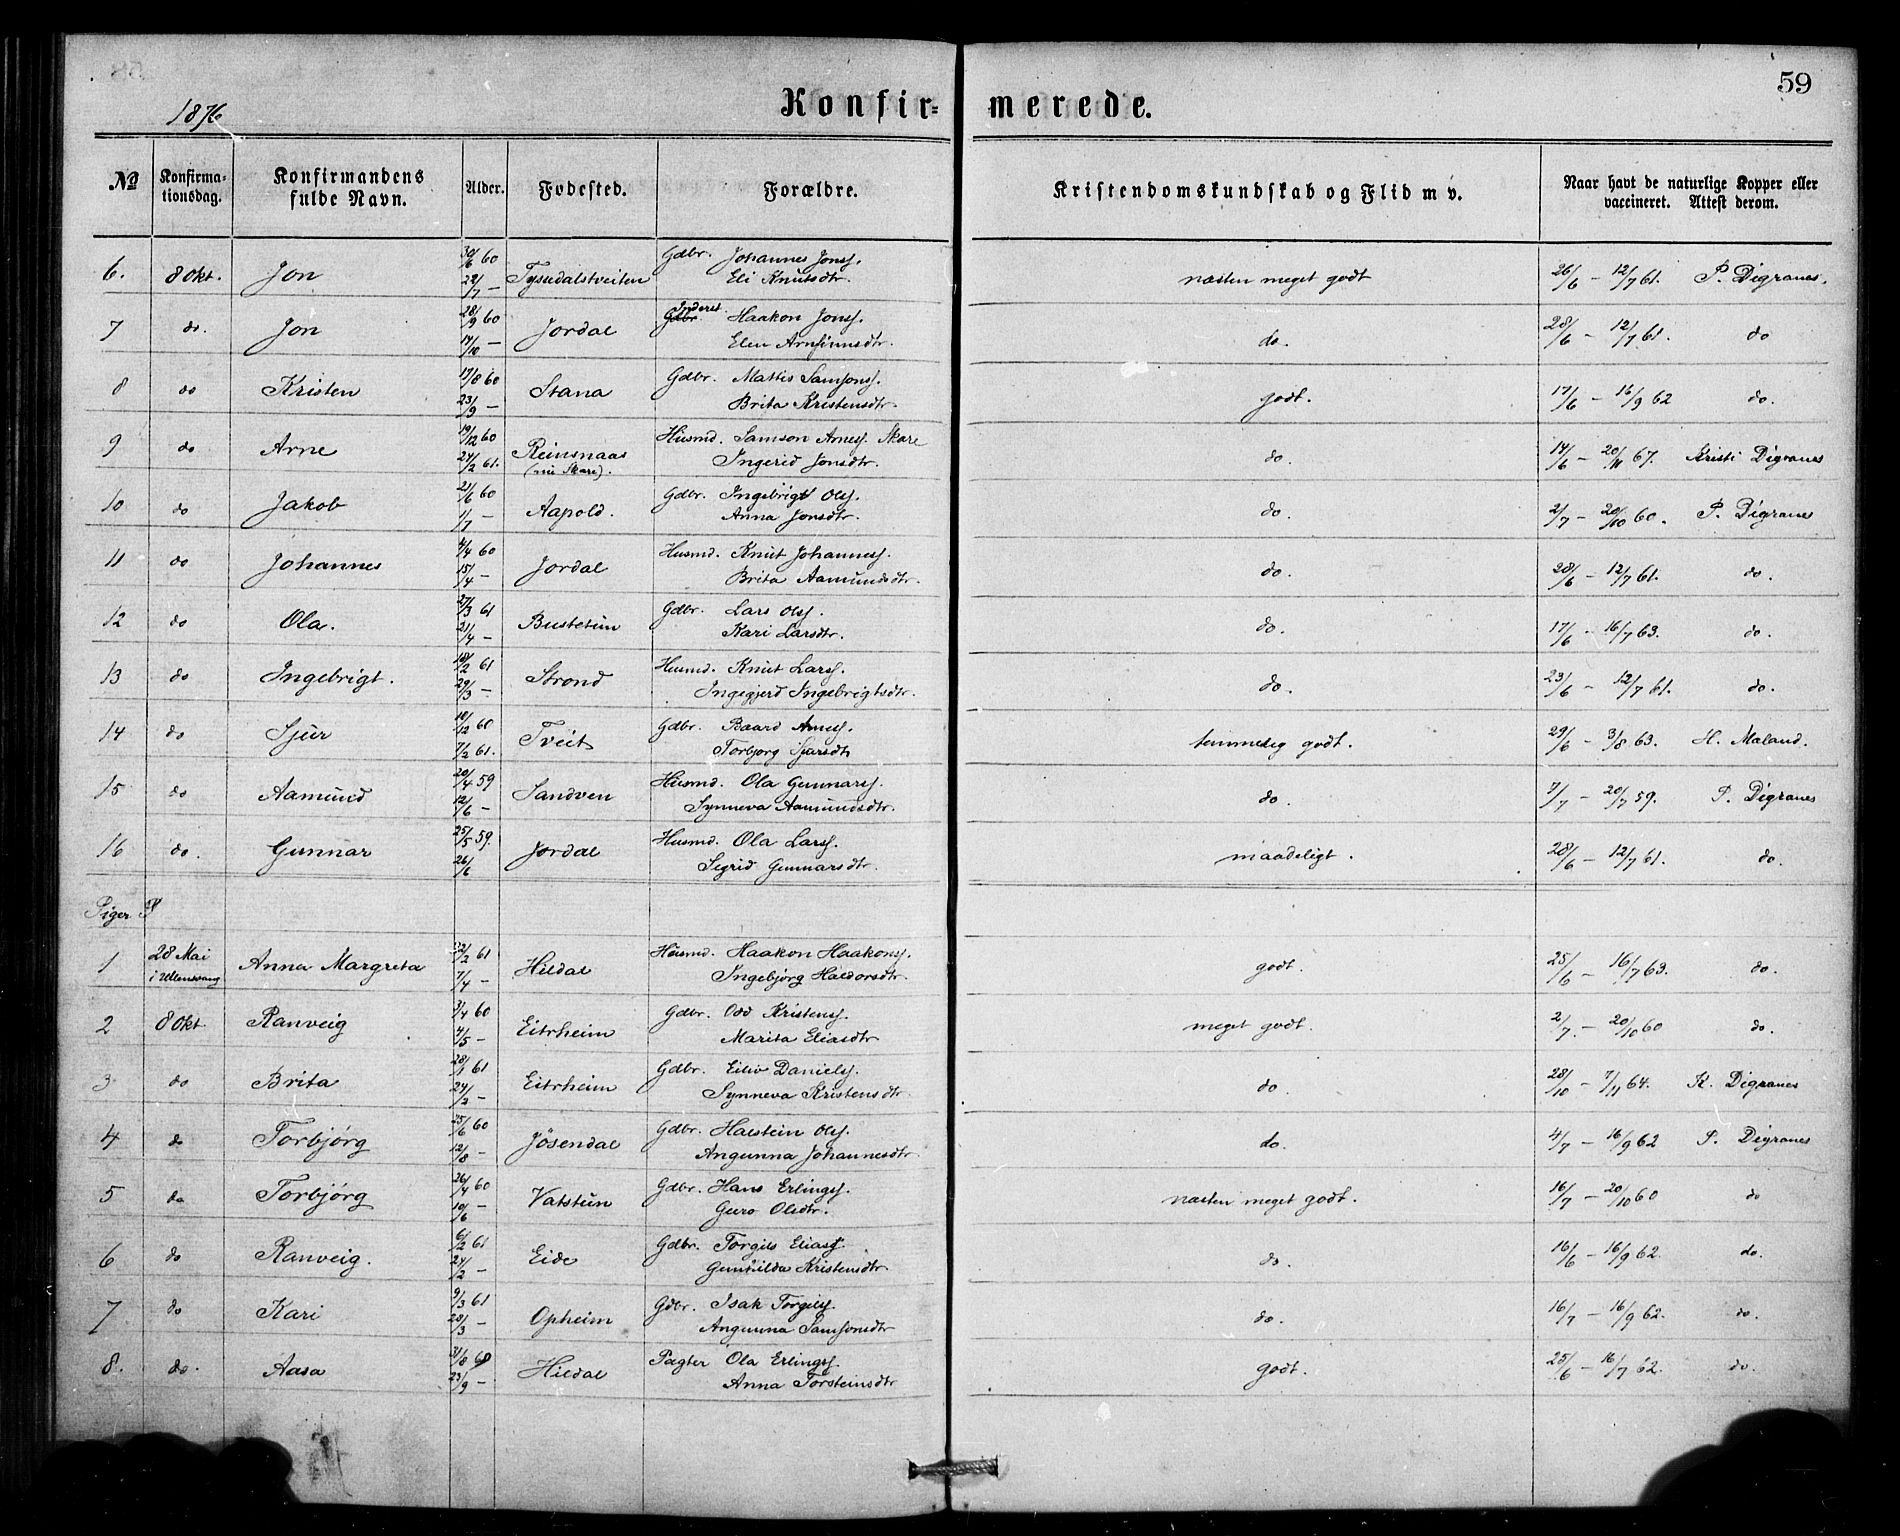 59
1876
Konfir=merede.
No Konfirma-tionsdag. Konfirmandens fulde Navn. Alder. Fodested. Forældre. Kristendomskundskab og Flid m v. Naar havt de naturlige Kopper eller vaccineret. Attest derom.
6. 8 Okt. Jon 30/6 60 22/7 — Tyssedalstveiten Gdbr. Johannes Jonss. Eli Knutsdtr. næsten meget godt 26/6 — 12/7 61. P. Digranes.
7 do. Jon 28/9 60 14/10 — Jordal Inderst Haakon Jonss. Elen Arnfinnsdtr. do. 28/6 — 12/7 61. do
8 do Kristen 17/8 60 23/9 — Stana Gdbr. Mattis Samsons. Brita Kristensdtr. godt. 17/6 — 16/9 62 do.
9 do Arne 19/12 60 24/2 61. Reinsnaas (nu Skare). Husmd. Samson Arnes. Skare Ingerid Jonsdtr. do. 14/6 — 20/11 67. Kristi Digranes
10 do Jakob 21/6 60 1/7 — Aapold. Gdbr. Ingebrigt Ols. Anna Jonsdtr. do. 2/7 — 20/10 60. P. Digranes
11 do Johannes 4/4 60 15/4 — Jordal Husmd. Knut Johanness. Brita Aamundsdtr. do. 28/6 — 12/7 61. do.
12 do Ola. 27/3 61 21/4 — Bustetun Gdbr. Lars Ols. Kari Larsdtr. do. 17/6 — 16/7 63. do.
13 do Ingebrigt. 18/2 61 29/3 — Strond Husmd. Knut Larss. Ingegjerd Ingebrigtsdtr. do. 23/6 — 12/7 61. do.
14 do Sjur 10/12 60 7/2 61. Tveit Gdbr. Baard Arnes. Torbjorg Sjursdtr temmelig godt. 29/6 — 3/8 63. H. Maland.
15 do Aamund 20/4 59 12/6 — Sandven Husmd. Ola Gunnarss. Synneva Aamundsdtr. do. 7/7 — 20/7 59. P. Digranes
16 do. Gunnar 25/5 59. 26/6 Jordal Husmd. Ola Larss. Sigrid Gunnarsdtr. maadeligt. 28/6 — 12/7 61. do.
Piger
1 28 Mai i Ullensvang Anna Margreta 22/2 61 7/4 — Hildal Husmd. Haakon Haakons. Ingebjørg Haldorsdtr. godt. 25/6 — 16/7 63. do.
2 8 Okt. Ranveig 3/4 60 4/5 — Eitrheim Gdbr. Odd Kristens. Marita Eliasdtr meget godt. 2/7. — 20/10 60 do.
3 do Brita 28/1 61 24/2 — Eitrheim Gdbr. Eiliv Daniels. Synneva Kristensdtr. do 28/10 — 7/11 64. K. Digranes
4 do Torbjörg 25/6 60 12/8 — Jösendal Gdbr. Halstein Ols. Angunna Johannesdtr do. 4/7 — 16/9 62 P. Digranes
5 do Torbjörg 26/4 60 10/6 — Vatstun Gdbr. Hans Erlings. Guro Olsdtr. næsten meget godt. 16/7 — 20/10 60 do
6 do Ranveig. 6/2 61 24/2 — Eide Gdbr. Torgils Elias. Gunhilda Kristensdtr do. 16/6 — 16/9 62. do.
7 do Kari 9/3 61 28/3 — Opheim Gdbr. Isak Torgils. Angunna Samsonsdtr do. 16/7 — 16/9 62. do.
8. do. Aasa 31/8 60 23/9 — Hildal Pagter Ola Erlings. Anna Torsteinsdtr godt. 25/6 — 16/7 62. do.